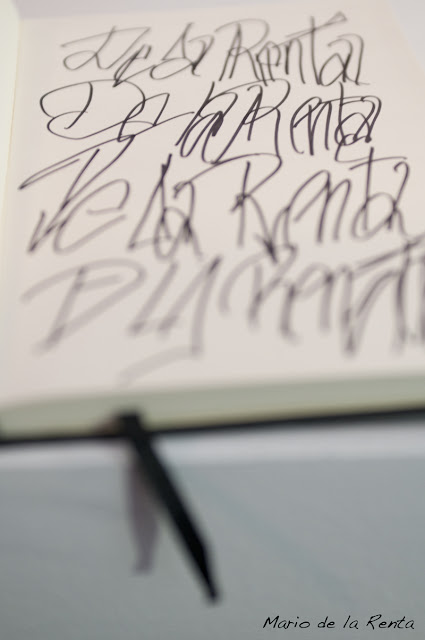 De la Renta
De la Renta
De la Renta
D la Renta
Mario de la Renta